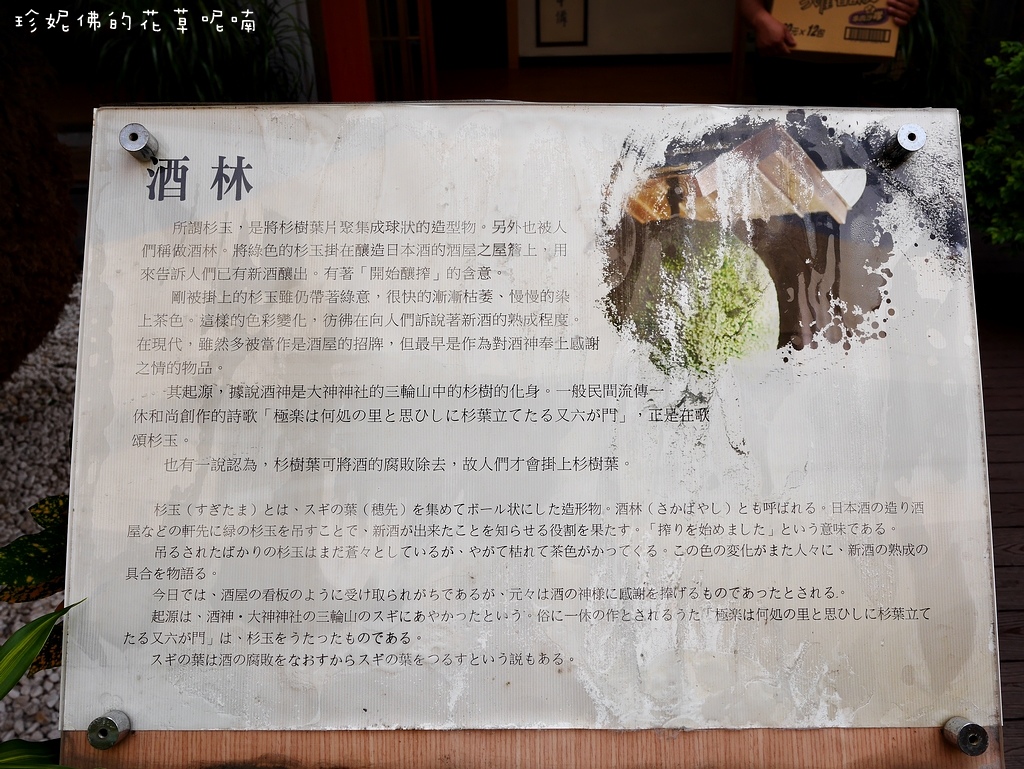 珍妮佛的花草呢喃
酒林
所謂杉玉，是將杉樹葉片聚集成球狀的造型物。另外也被人
們稱做酒林。將綠色的杉玉掛在釀造日本酒的酒屋之屋簷上，用
來告訴人們已有新酒釀出。有著「開始釀搾」的含意。
剛被掛上的杉玉雖仍帶著綠意，很快的漸漸枯萎、慢慢的染
上茶色。這樣的色彩變化，彷彿在向人們訴說著新酒的熟成程度。
在現代，雖然多被當作是酒屋的招牌，但最早是作為對酒神奉上感謝
之情的物品。
其起源，據說酒神是大神神社的三輪山中的杉樹的化身。一般民間流傳一
休和尚創作的詩歌「極楽は何処の里と思ひしに杉葉立てたる又六が門」，正是在歌
頌杉玉。
也有一說認為，杉樹葉可將酒的腐敗除去，故人們才會掛上杉樹葉。
杉玉（すぎたま）とは、スギの葉（穂先）を集めてボール状にした造形物。酒林（さかばやし）とも呼ばれる。日本酒の造り酒
屋などの軒先に緑の杉玉を吊すことで、新酒が出来たことを知らせる役割を果たす。「搾りを始めました」という意味である。
吊るされたばかりの杉玉はまだ蒼々としているが、やがて枯れて茶色がかってくる。この色の変化がまた人々に、新酒の熟成の
具合を物語る。
今日では、酒屋の看板のように受け取られがちであるが、元々は酒の神様に感謝を捧げるものであったとされる。
起源は、酒神・大神神社の三輪山のスギにあやかったという。俗に一休の作とされるうた「極楽は何処の里と思ひしに杉葉立て
たる又六が門」は、杉玉をうたったものである。
スギの葉は酒の腐敗をなおすからスギの葉をつるすという説もある。